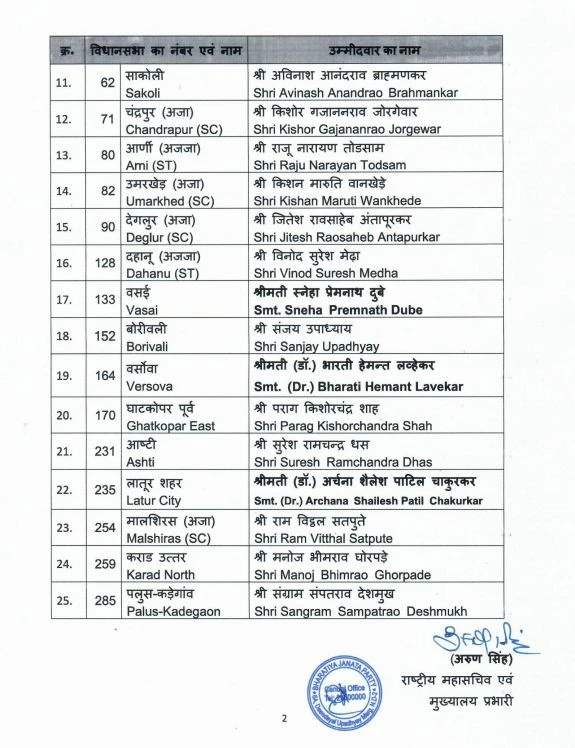 क्र. विधानसभा का नंबर एवं नाम उम्मीदवार का नाम
11. 62 साकोली श्री अविनाश आनंदराव ब्राहमणकर
Sakoli Shri Avinash Anandrao Brahmankar
12. 71 चंद्रपुर (अजा) श्री किशोर गजाननराव जोरगेवार
Chandrapur (SC) Shri Kishor Gajananrao Jorgewar
13. 80 आर्णी (अजजा) श्री राजू नारायण तोडसाम
Arni (ST) Shri Raju Narayan Todsam
14. 82 उमरखेड़ (अजा) श्री किशन मारुति वानखेड़े
Umarkhed (SC) Shri Kishan Maruti Wankhede
15. 90 देगलुर (अजा) श्री जितेश रावसाहेब अंतापूरकर
Deglur (SC) Shri Jitesh Raosaheb Antapurkar
16. 128 दहानू (अजजा) श्री विनोद सुरेश मेढ़ा
Dahanu (ST) Shri Vinod Suresh Medha
17. 133 वसई श्रीमती स्नेहा प्रेमनाथ दुबे
Vasai Smt. Sneha Premnath Dube
18. 152 बोरीवली श्री संजय उपाध्याय
Borivali Shri Sanjay Upadhyay
19. 164 वर्सोवा श्रीमती (डॉ.) भारती हेमन्त लव्हेकर
Versova Smt. (Dr.) Bharati Hemant Lavekar
20. 170 घाटकोपर पूर्व श्री पराग किशोरचंद्र शाह
Ghatkopar East Shri Parag Kishorchandra Shah
21. 231 आष्टी श्री सुरेश रामचन्द्र धस
Ashti Shri Suresh Ramchandra Dhas
22. 235 लातूर शहर श्रीमती (डॉ.) अर्चना शैलेश पाटिल चाकुरकर
Latur City Smt. (Dr.) Archana Shailesh Patil Chakurkar
23. 254 मालशिरस (अजा) श्री राम विट्ठल सतपुते
Malshiras (SC) Shri Ram Vitthal Satpute
24. 259 कराड उत्तर श्री मनोज भीमराव घोरपड़े
Karad North Shri Manoj Bhimrao Ghorpade
25. 285 पलुस-कड़ेगांव श्री संग्राम संपतराव देशमुख
Palus-Kadegaon Shri Sangram Sampatrao Deshmukh
(अरुण सिंह)
राष्ट्रीय महासचिव एवं
मुख्यालय प्रभारी
BHARATIYA JANATA PARTY
Central Office
Deendayal Upadhyay Marg
2